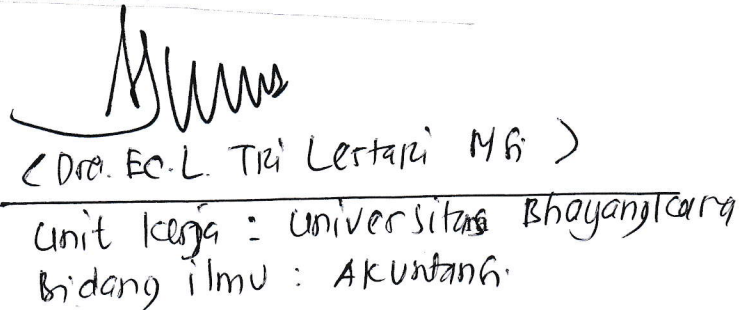 (Dra. EC. L. Tri Lestari MSi)
Unit kerja : Universitas Bhayangkara
Bidang ilmu : Akuntansi.